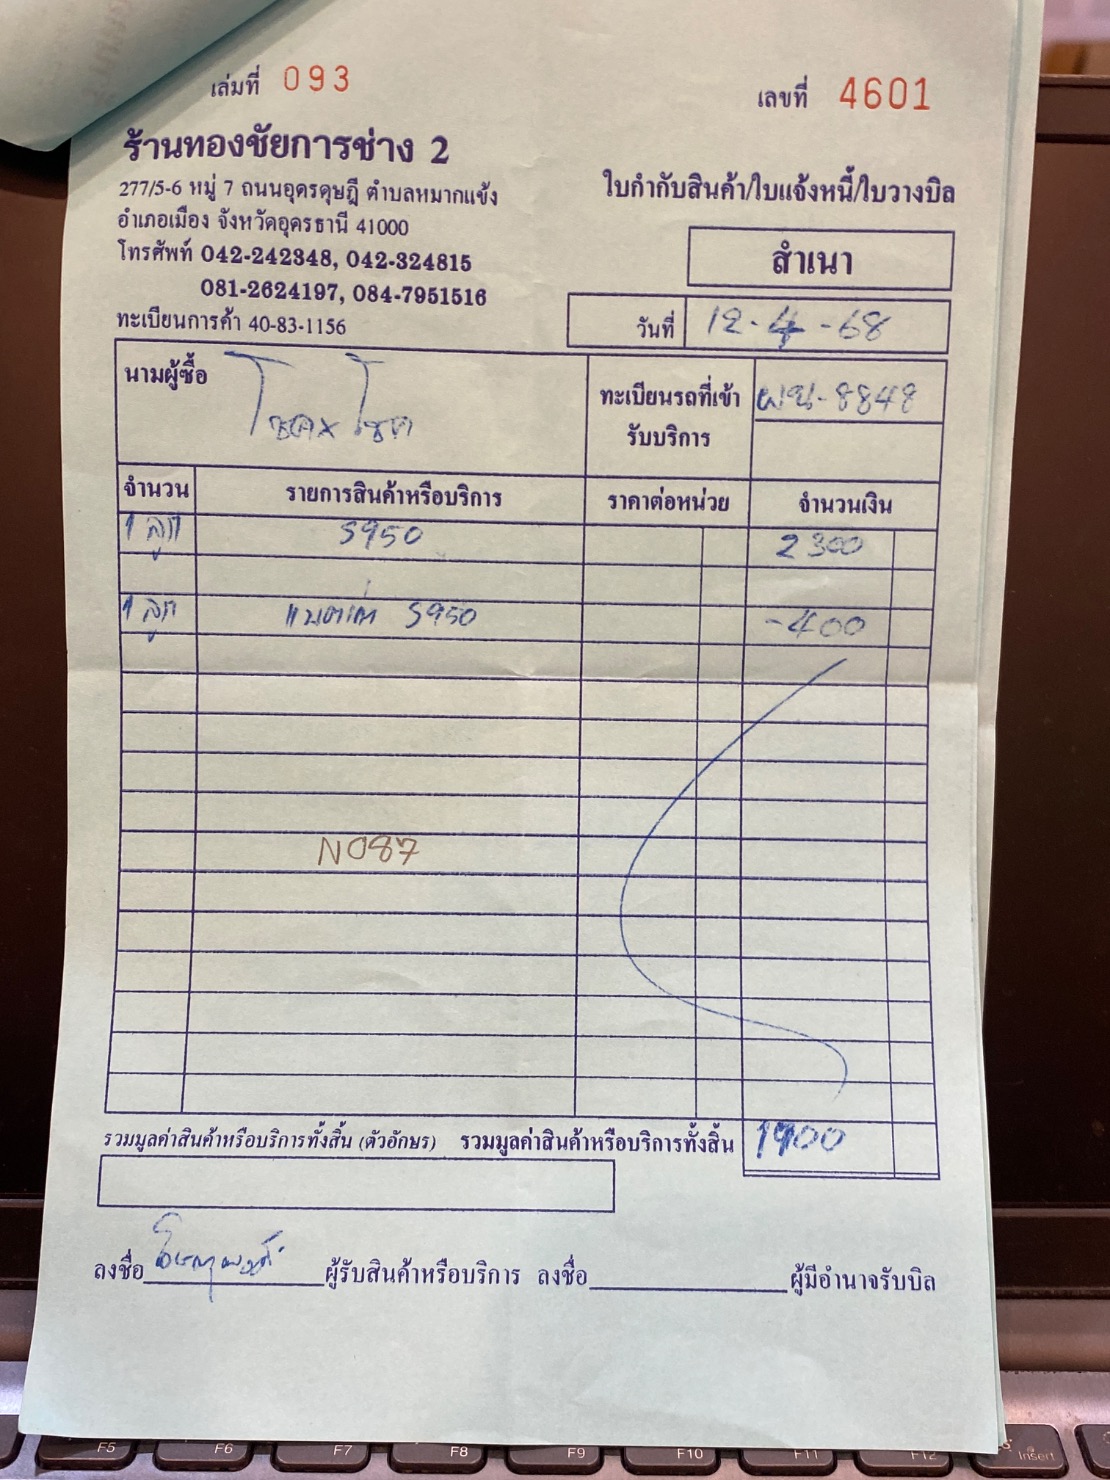 เล่มที่ 093
เลขที่ 4601
ร้านทองชัยการช่าง 2
277/5-6 หมู่ 7 ถนนอุดรดุษฎี ตำบลหมากแข้ง
อำเภอเมือง จังหวัดอุดรธานี 41000
โทรศัพท์ 042-242348, 042-324815
081-2624197, 084-7951516
ทะเบียนการค้า 40-83-1156
ใบกำกับสินค้า/ใบแจ้งหนี้/ใบวางบิล
สำเนา
วันที่ 12-4-68
นามผู้ซื้อ
ทะเบียนรถที่เข้า
รับบริการ
ผน-8848
จำนวน รายการสินค้าหรือบริการ ราคาต่อหน่วย จำนวนเงิน
1 ลูก S950 2300
1 ลูก แบตเก่า S950 -400
N087
รวมมูลค่าสินค้าหรือบริการทั้งสิ้น (ตัวอักษร) รวมมูลค่าสินค้าหรือบริการทั้งสิ้น 1900
ลงชื่อ ผู้รับสินค้าหรือบริการ ลงชื่อ ผู้มีอำนาจรับบิล
F5 F6 F7 F8 F9 F10 F11 F12 Insert